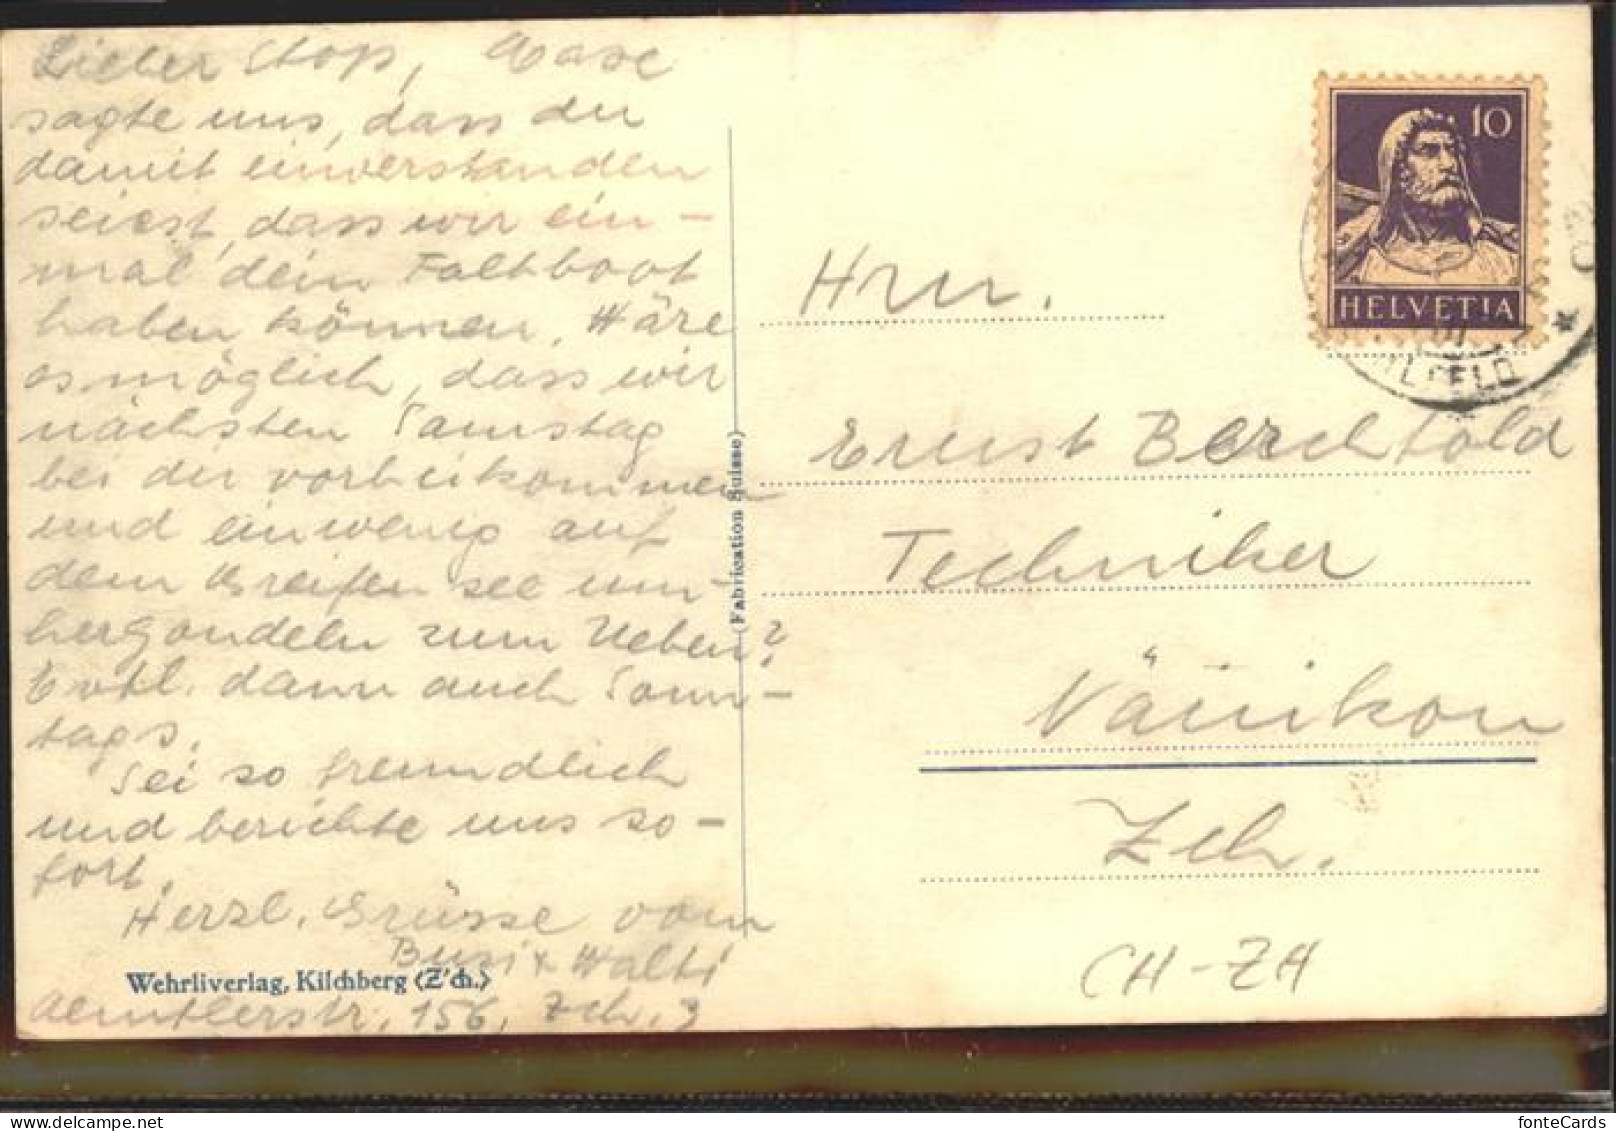 Lieber Stop, Base
sagte uns, dass du
damit einverstanden
seiest, dass wir ein-
mal dein Faltboot
haben können. Wäre
es möglich, dass wir
nächsten Samstag
bei dir vorbeikommen
und ein wenig auf
dem Greifensee um-
hergondeln zum Ueben?
Evtl. dann auch Sonn-
tags.
Sei so freundlich
und berichte uns so-
fort.
Herzl. Grüsse vom
Busi & Walti
Wehrliverlag, Kilchberg (Z'ch.)
Aemtlerstr. 156, Zch. 3
(Fabrication Suisse)
10
HELVETIA
Hrn.
Ernst Berchtold
Techniker
Vänikon
Zch.
CH-ZH
fonteCards